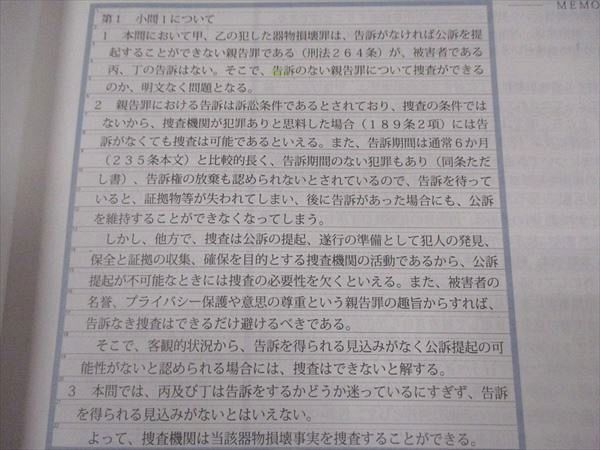 MEMO
第1 小問1について
1 本問において甲、乙の犯した器物損壊罪は、告訴がなければ公訴を提
起することができない親告罪である（刑法264条）が、被害者である
丙、丁の告訴はない。そこで、告訴のない親告罪について捜査ができる
のか、明文なく問題となる。
2 親告罪における告訴は訴訟条件であるとされており、捜査の条件では
ないから、捜査機関が犯罪ありと思料した場合（189条2項）には告
訴がなくても捜査は可能であるといえる。また、告訴期間は通常6か月
（235条本文）と比較的長く、告訴期間のない犯罪もあり（同条ただ
し書）、告訴権の放棄も認められないとされているので、告訴を待って
いると、証拠物等が失われてしまい、後に告訴があった場合にも、公訴
を維持することができなくなってしまう。
しかし、他方で、捜査は公訴の提起、遂行の準備として犯人の発見、
保全と証拠の収集、確保を目的とする捜査機関の活動であるから、公訴
提起が不可能なときには捜査の必要性を欠くといえる。また、被害者の
名誉、プライバシー保護や意思の尊重という親告罪の趣旨からすれば、
告訴なき捜査はできるだけ避けるべきである。
そこで、客観的状況から、告訴を得られる見込みがなく公訴提起の可
能性がないと認められる場合には、捜査はできないと解する。
3 本問では、丙及び丁は告訴をするかどうか迷っているにすぎず、告訴
を得られる見込みがないとはいえない。
よって、捜査機関は当該器物損壊事実を捜査することができる。